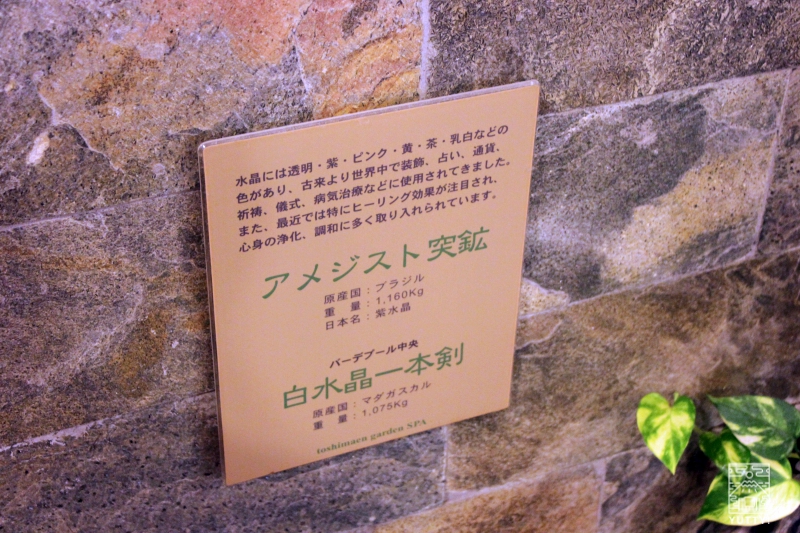 水晶には透明・紫・ピンク・黄・茶・乳白などの
色があり、古来より世界中で装飾、占い、通貨、
祈祷、儀式、病気治療などに使用されてきました。
また、最近では特にヒーリング効果が注目され、
心身の浄化、調和に多く取り入れられています。
アメジスト突鉱
原産国：ブラジル
重　量：1,160Kg
日本名：紫水晶
バーデプール中央
白水晶一本剣
原産国：マダガスカル
重　量：1,075Kg
toshimaen garden SPA